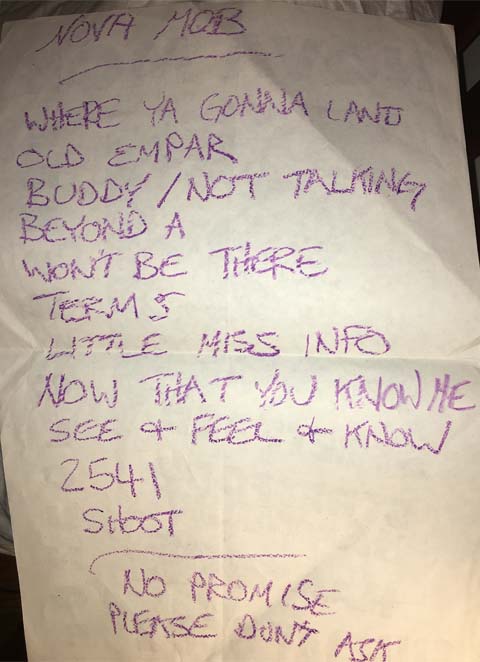 NOVA MOB
WHERE YA GONNA LAND
OLD EMPAR
BUDDY / NOT TALKING
BEYOND A
WON'T BE THERE
TERMS
LITTLE MISS INFO
NOW THAT YOU KNOW ME
SEE & FEEL & KNOW
2541
SHOOT
NO PROMISE
PLEASE DON'T ASK